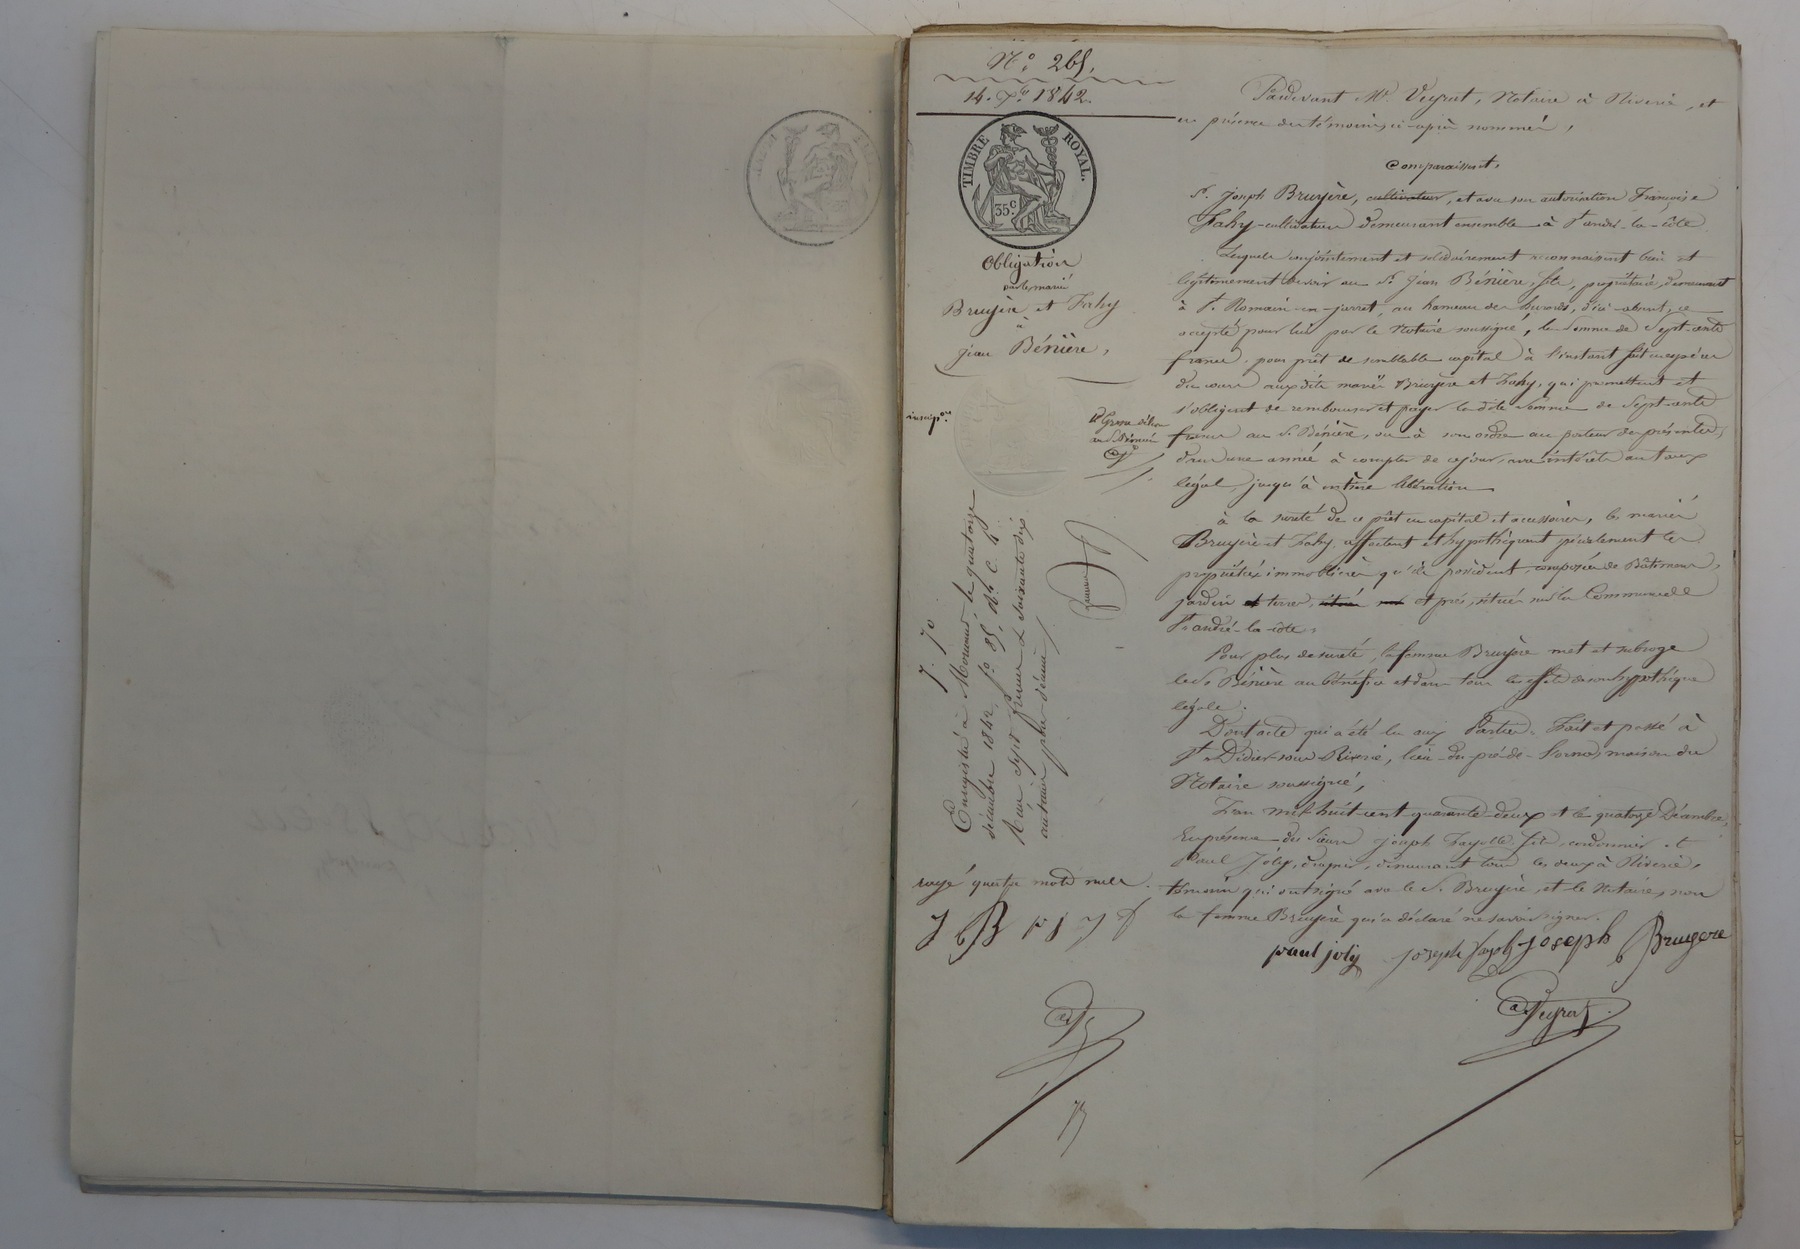 N.º 265.
14. Xbre 1842.
TIMBRE ROYAL.
35 c.
Obligation
par les mariés
Bruyère et Fahy
à
Jean Bénière,
inscip.on
1re Grosse délivrée
au S. Bénière
Enregistré à Mornant le quatorze
décembre 1842, f.º 85, Rº. C. 4.
Reçu sept francs & soixante dix
centimes plus décime
7. 70
rayé quatre mots nuls.
J B
Pardevant Me. Veyrat, Notaire à Riverie, et
en présence des témoins ci-après nommés,
Comparaissent,
Sr. Joseph Bruyère, cultivateur, et avec son autorisation Françoise
Fahy cultivateurs demeurant ensemble à St andré-la-côte
Lesquels conjointement et solidairement reconnaissent bien et
légitimement devoir au Sr. Jean Bénière, fils, propriétaire, demeurant
à St. Romain-en-jarret, au hameau des, d'ici absent, ce
accepté pour lui par le Notaire soussigné, la somme de sept cents
francs, pour prêt de semblable capital à l'instant fait en espèces
du cours auxdits mariés Bruyère et Fahy, qui promettent et
s'obligent de rembourser et payer la dite somme de sept cents
francs au S. Bénière, ou à son ordre au porteur des présentes,
dans une année à compter de ce jour, avec intérêts au taux
légal, jusqu'à entière libération
à la sureté de ce prêt en capital et accessoires, les mariés
Bruyère et Fahy, affectent et hypothèquent spécialement les
propriétés immobilières qu'ils possèdent, composées de Bâtiments,
jardin et terres, situées sur et prés, situés sur la Commune de
St andré-la-côte.
Pour plus de sureté, la femme Bruyère met et subroge
le Sr Bénière au bénéfice et dans tous les effets de son hypothèque
légale.
Dont acte qui a été lu aux Parties. Fait et passé à
St. Didier-sous-Riverie, lieu du pré-de-, maison du
Notaire soussigné,
L'an mil huit cent quarante-deux et le quatorze Décembre,
En présence des Sieurs Joseph Fayolle fils, cordonnier et
Paul Joly, demeurant tous les deux à Riverie,
témoins qui ont signé avec le S. Bruyère, et le Notaire, non
la femme Bruyère qui a déclaré ne savoir signer.
paul joly joseph fayolle joseph Bruyere
Veyrat